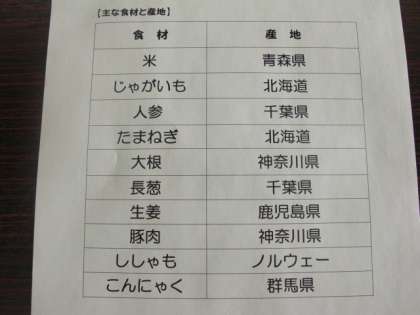 【主な食材と産地】
食 材 産 地
米 青森県
じゃがいも 北海道
人参 千葉県
たまねぎ 北海道
大根 神奈川県
長葱 千葉県
生姜 鹿児島県
豚肉 神奈川県
ししゃも ノルウェー
こんにゃく 群馬県